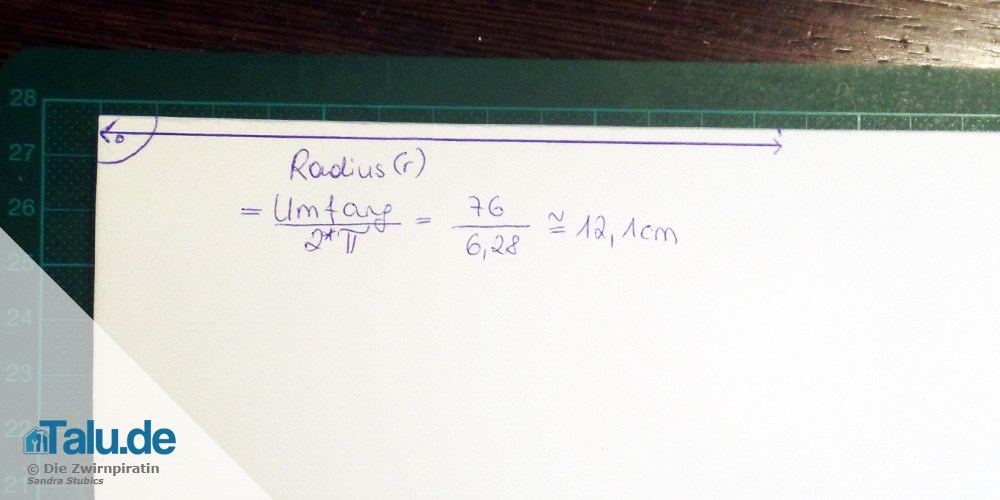 28
27
26
25
24
23
22
21
Radius (r)
= Umfang / 2*π = 76 / 6,28 ≅ 12,1cm
Talu.de
© Die Zwirnpiratin
Sandra Stubics